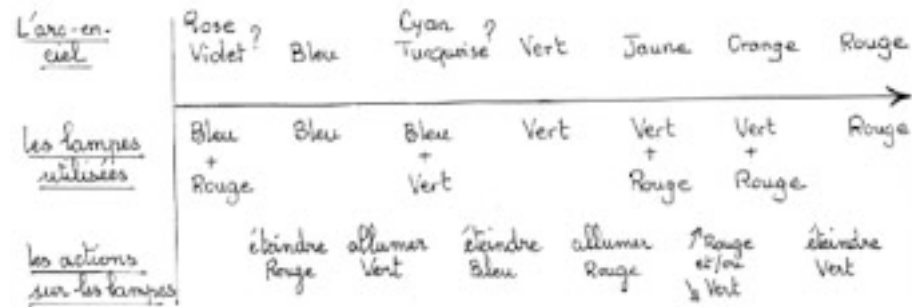 L'arc-en-
ciel
Rose
Violet ?
Bleu
Cyan
Turquoise ?
Vert
Jaune
Orange
Rouge
Les lampes
utilisées
Bleu
+
Rouge
Bleu
Bleu
+
Vert
Vert
Vert
+
Rouge
Vert
+
Rouge
Rouge
les actions
sur les lampes
éteindre
Rouge
allumer
Vert
éteindre
Bleu
allumer
Rouge
↗ Rouge
et/ou
↘ Vert
éteindre
Vert